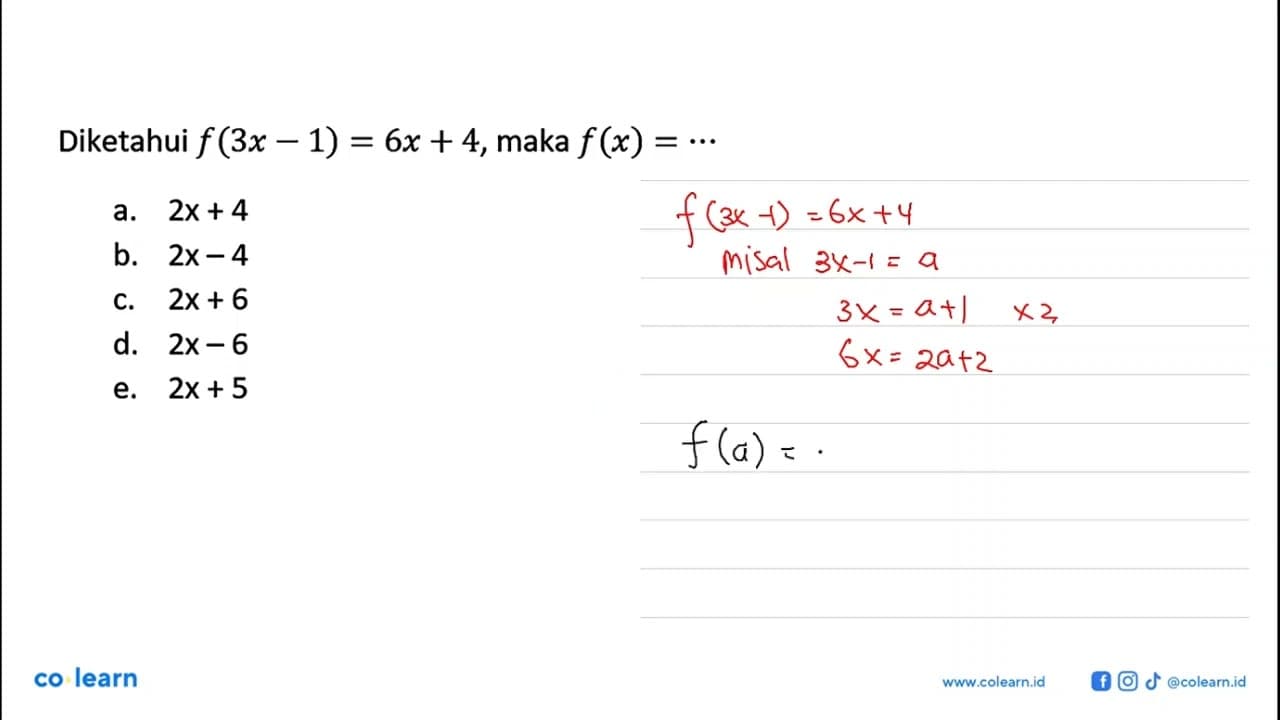 Diketahui f(3x − 1) = 6x + 4, maka f(x) = ⋯
a. 2x + 4
b. 2x – 4
c. 2x + 6
d. 2x – 6
e. 2x + 5
f(3x -1) = 6x + 4
misal 3x-1 = a
3x = a+1 x 2
6x = 2a+2
f(a) = .
co learn
www.colearn.id
@colearn.id